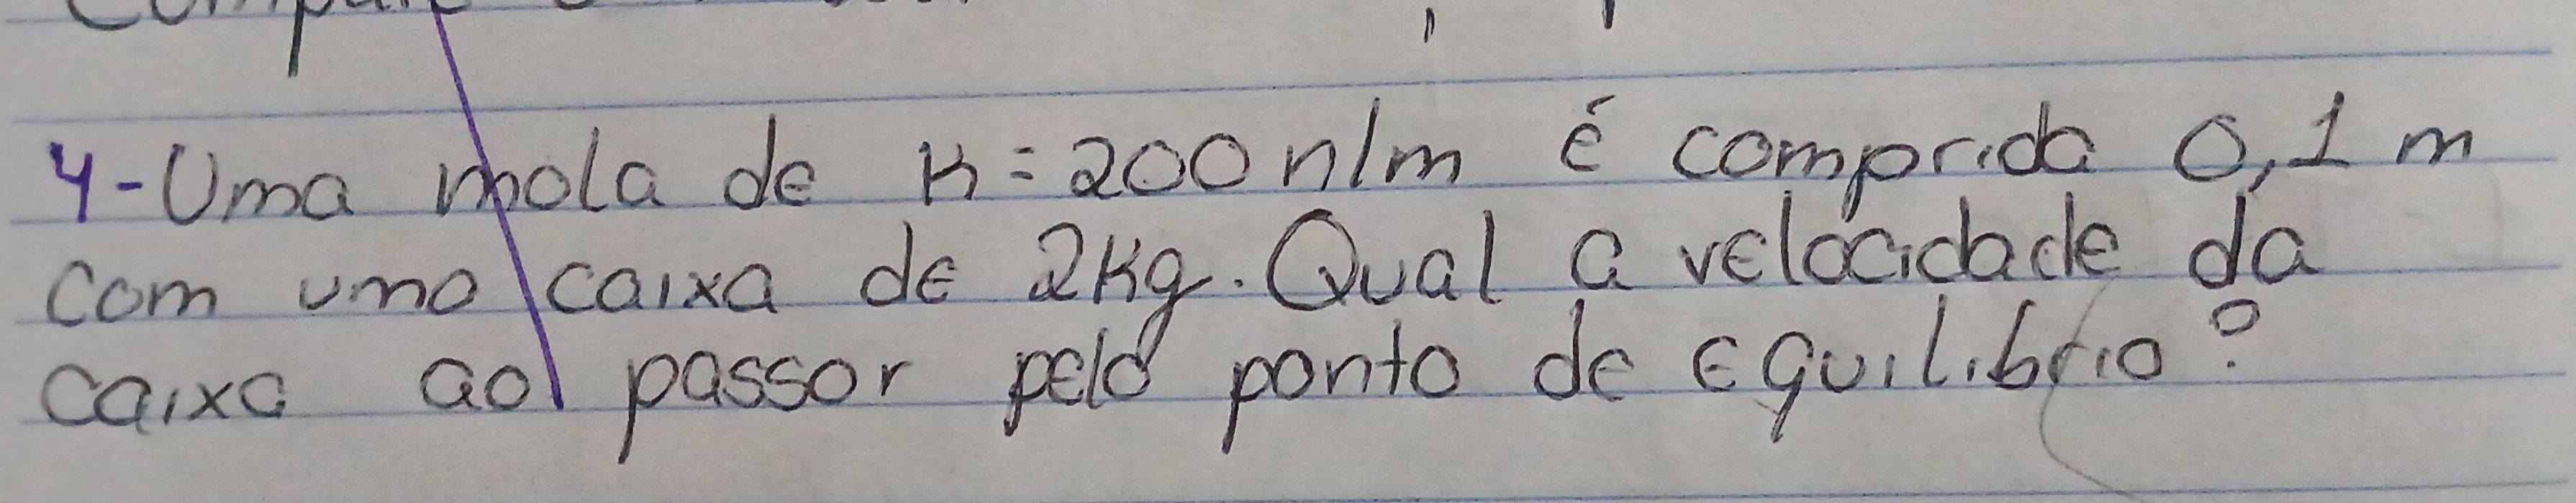 4-Uma mola de K=200n/m é comprida 0,1 m
com uma caixa de 2Kg. Qual a velocidade da
caixa ao passor pelo ponto de equilibrio?